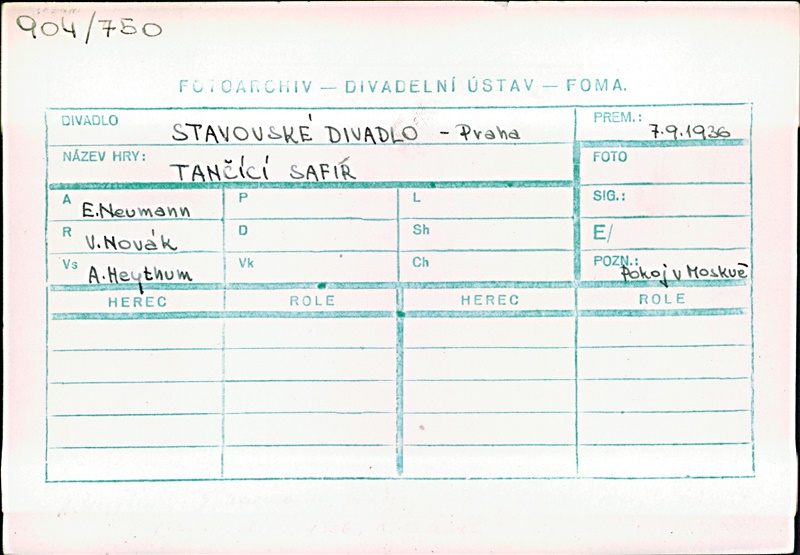 904/750
FOTOARCHIV — DIVADELNÍ ÚSTAV — FOMA.
DIVADLO STAVOVSKÉ DIVADLO - Praha PREM.: 7.9.1936
NÁZEV HRY: TANČÍCÍ SAFÍR FOTO
A E.Neumann P L SIG.:
R V.Novák D Sh E/
Vs A.Heythum Vk Ch POZN.: Pokoj v Moskvě
HEREC ROLE HEREC ROLE